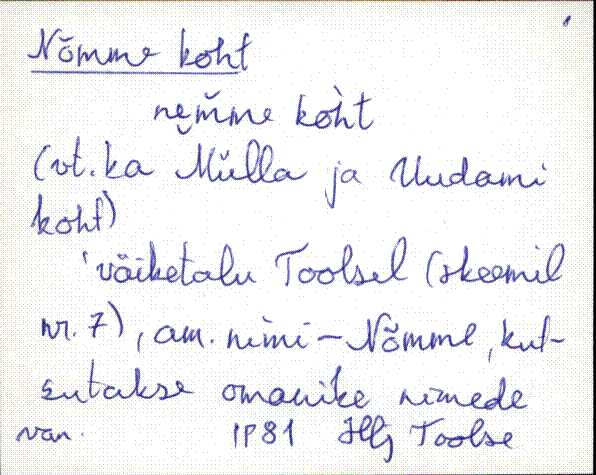 Nõmme koht
nem̆me kòht
(vt. ka Mülla ja Uudami
koht)
'väiketalu Toolsel (skeemil
nr. 7), am. nimi - Nõmme, kut-
sutakse omanike nimede
van. IP81 Hlj Toolse